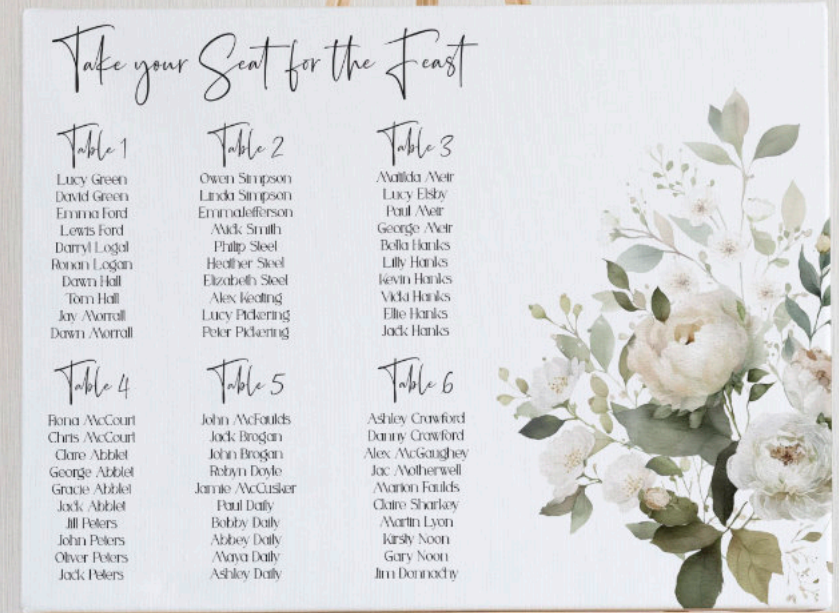 Take your Seat for the Feast
Table 1
Lucy Green
David Green
Emma Ford
Lewis Ford
Darryl Logal
Ronan Logan
Dawn Hall
Tom Hall
Jay Morrall
Dawn Morrall
Table 2
Owen Simpson
Linda Simpson
EmmaJefferson
Mick Smith
Philip Steel
Heather Steel
Elizabeth Steel
Alex Keating
Lucy Pickering
Peter Pickering
Table 3
Matilda Meir
Lucy Elsby
Paul Meir
George Meir
Bella Hanks
Lilly Hanks
Kevin Hanks
Vicki Hanks
Ellie Hanks
Jack Hanks
Table 4
Fiona McCourt
Chris McCourt
Clare Abblet
George Abblet
Gracie Abblet
Jack Abblet
Jill Peters
John Peters
Oliver Peters
Jack Peters
Table 5
John McFaulds
Jack Brogan
John Brogan
Robyn Doyle
Jamie McCusker
Paul Daily
Bobby Daily
Abbey Daily
Maya Daily
Ashley Daily
Table 6
Ashley Crawford
Danny Crawford
Alex McGaughey
Jac Motherwell
Marion Faulds
Claire Sharkey
Martin Lyon
Kirsty Noon
Gary Noon
Jim Donnachy